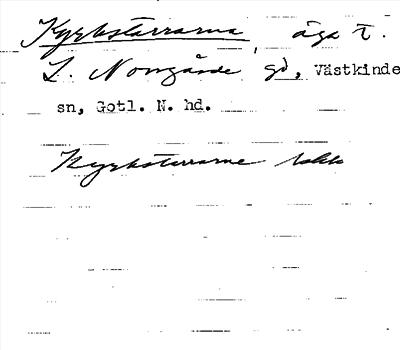 Kyrkstärrarna, äga t.
L. Norrgårde gd, Västkinde
sn, Gotl. N. hd.
Kyrkstärrarne